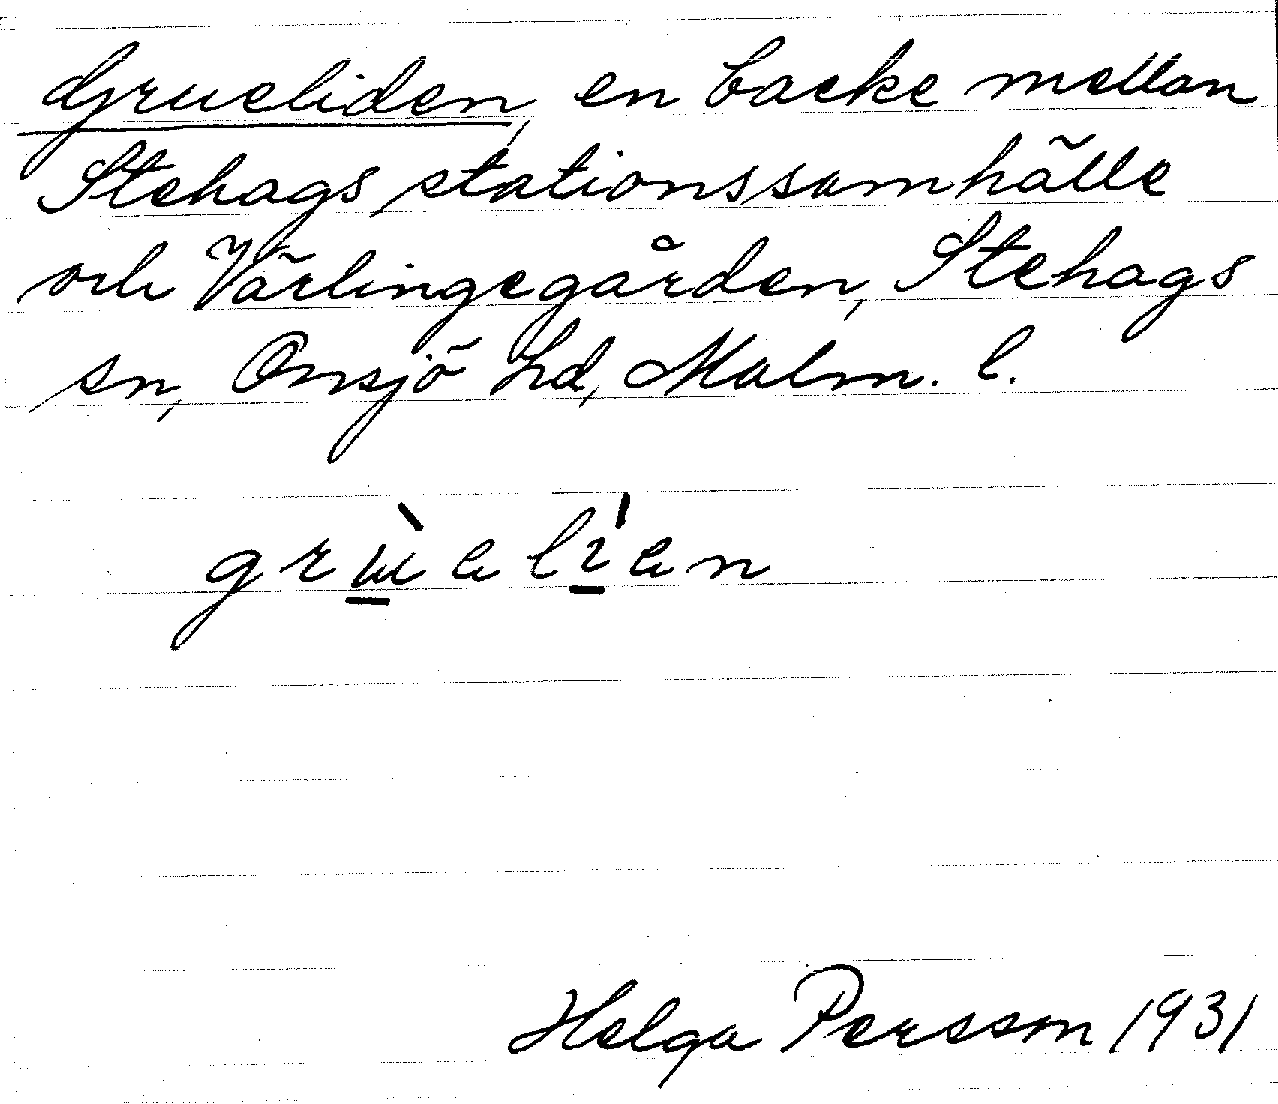 Grueliden, en backe mellan
Stehags stationssamhälle
och Värlingegården, Stehags
sn, Onsjö hd, Malm. l.
grù͟əlí͟ən
Helga Persson 1931